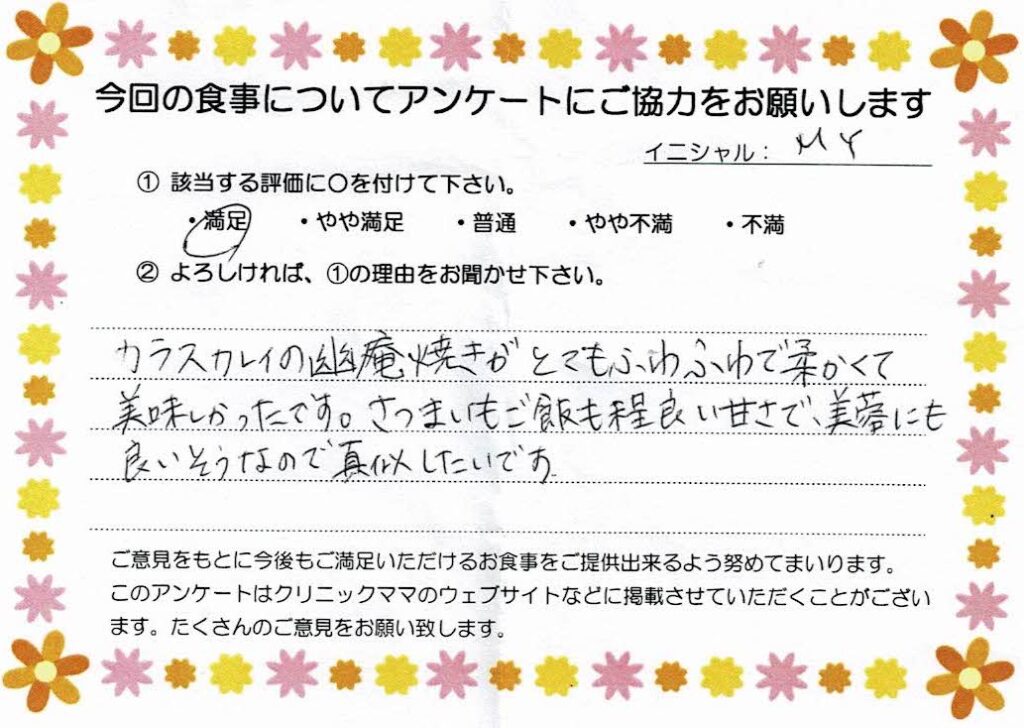 今回の食事についてアンケートにご協力をお願いします
イニシャル： MY
① 該当する評価に〇を付けて下さい。
・満足 ・やや満足 ・普通 ・やや不満 ・不満
② よろしければ、①の理由をお聞かせ下さい。
カラスカレイの幽庵焼きがとてもふわふわで柔かくて
美味しかったです。さつまいもご飯も程良い甘さで、美容にも
良いそうなので真似したいです
ご意見をもとに今後もご満足いただけるお食事をご提供出来るよう努めてまいります。
このアンケートはクリニックママのウェブサイトなどに掲載させていただくことがござい
ます。たくさんのご意見をお願い致します。